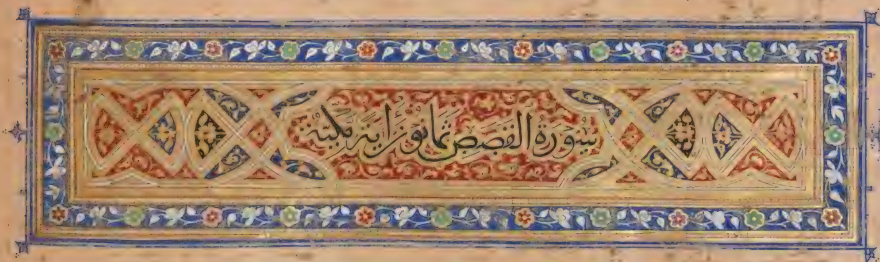 سورة القصص ثمانون اية مكية